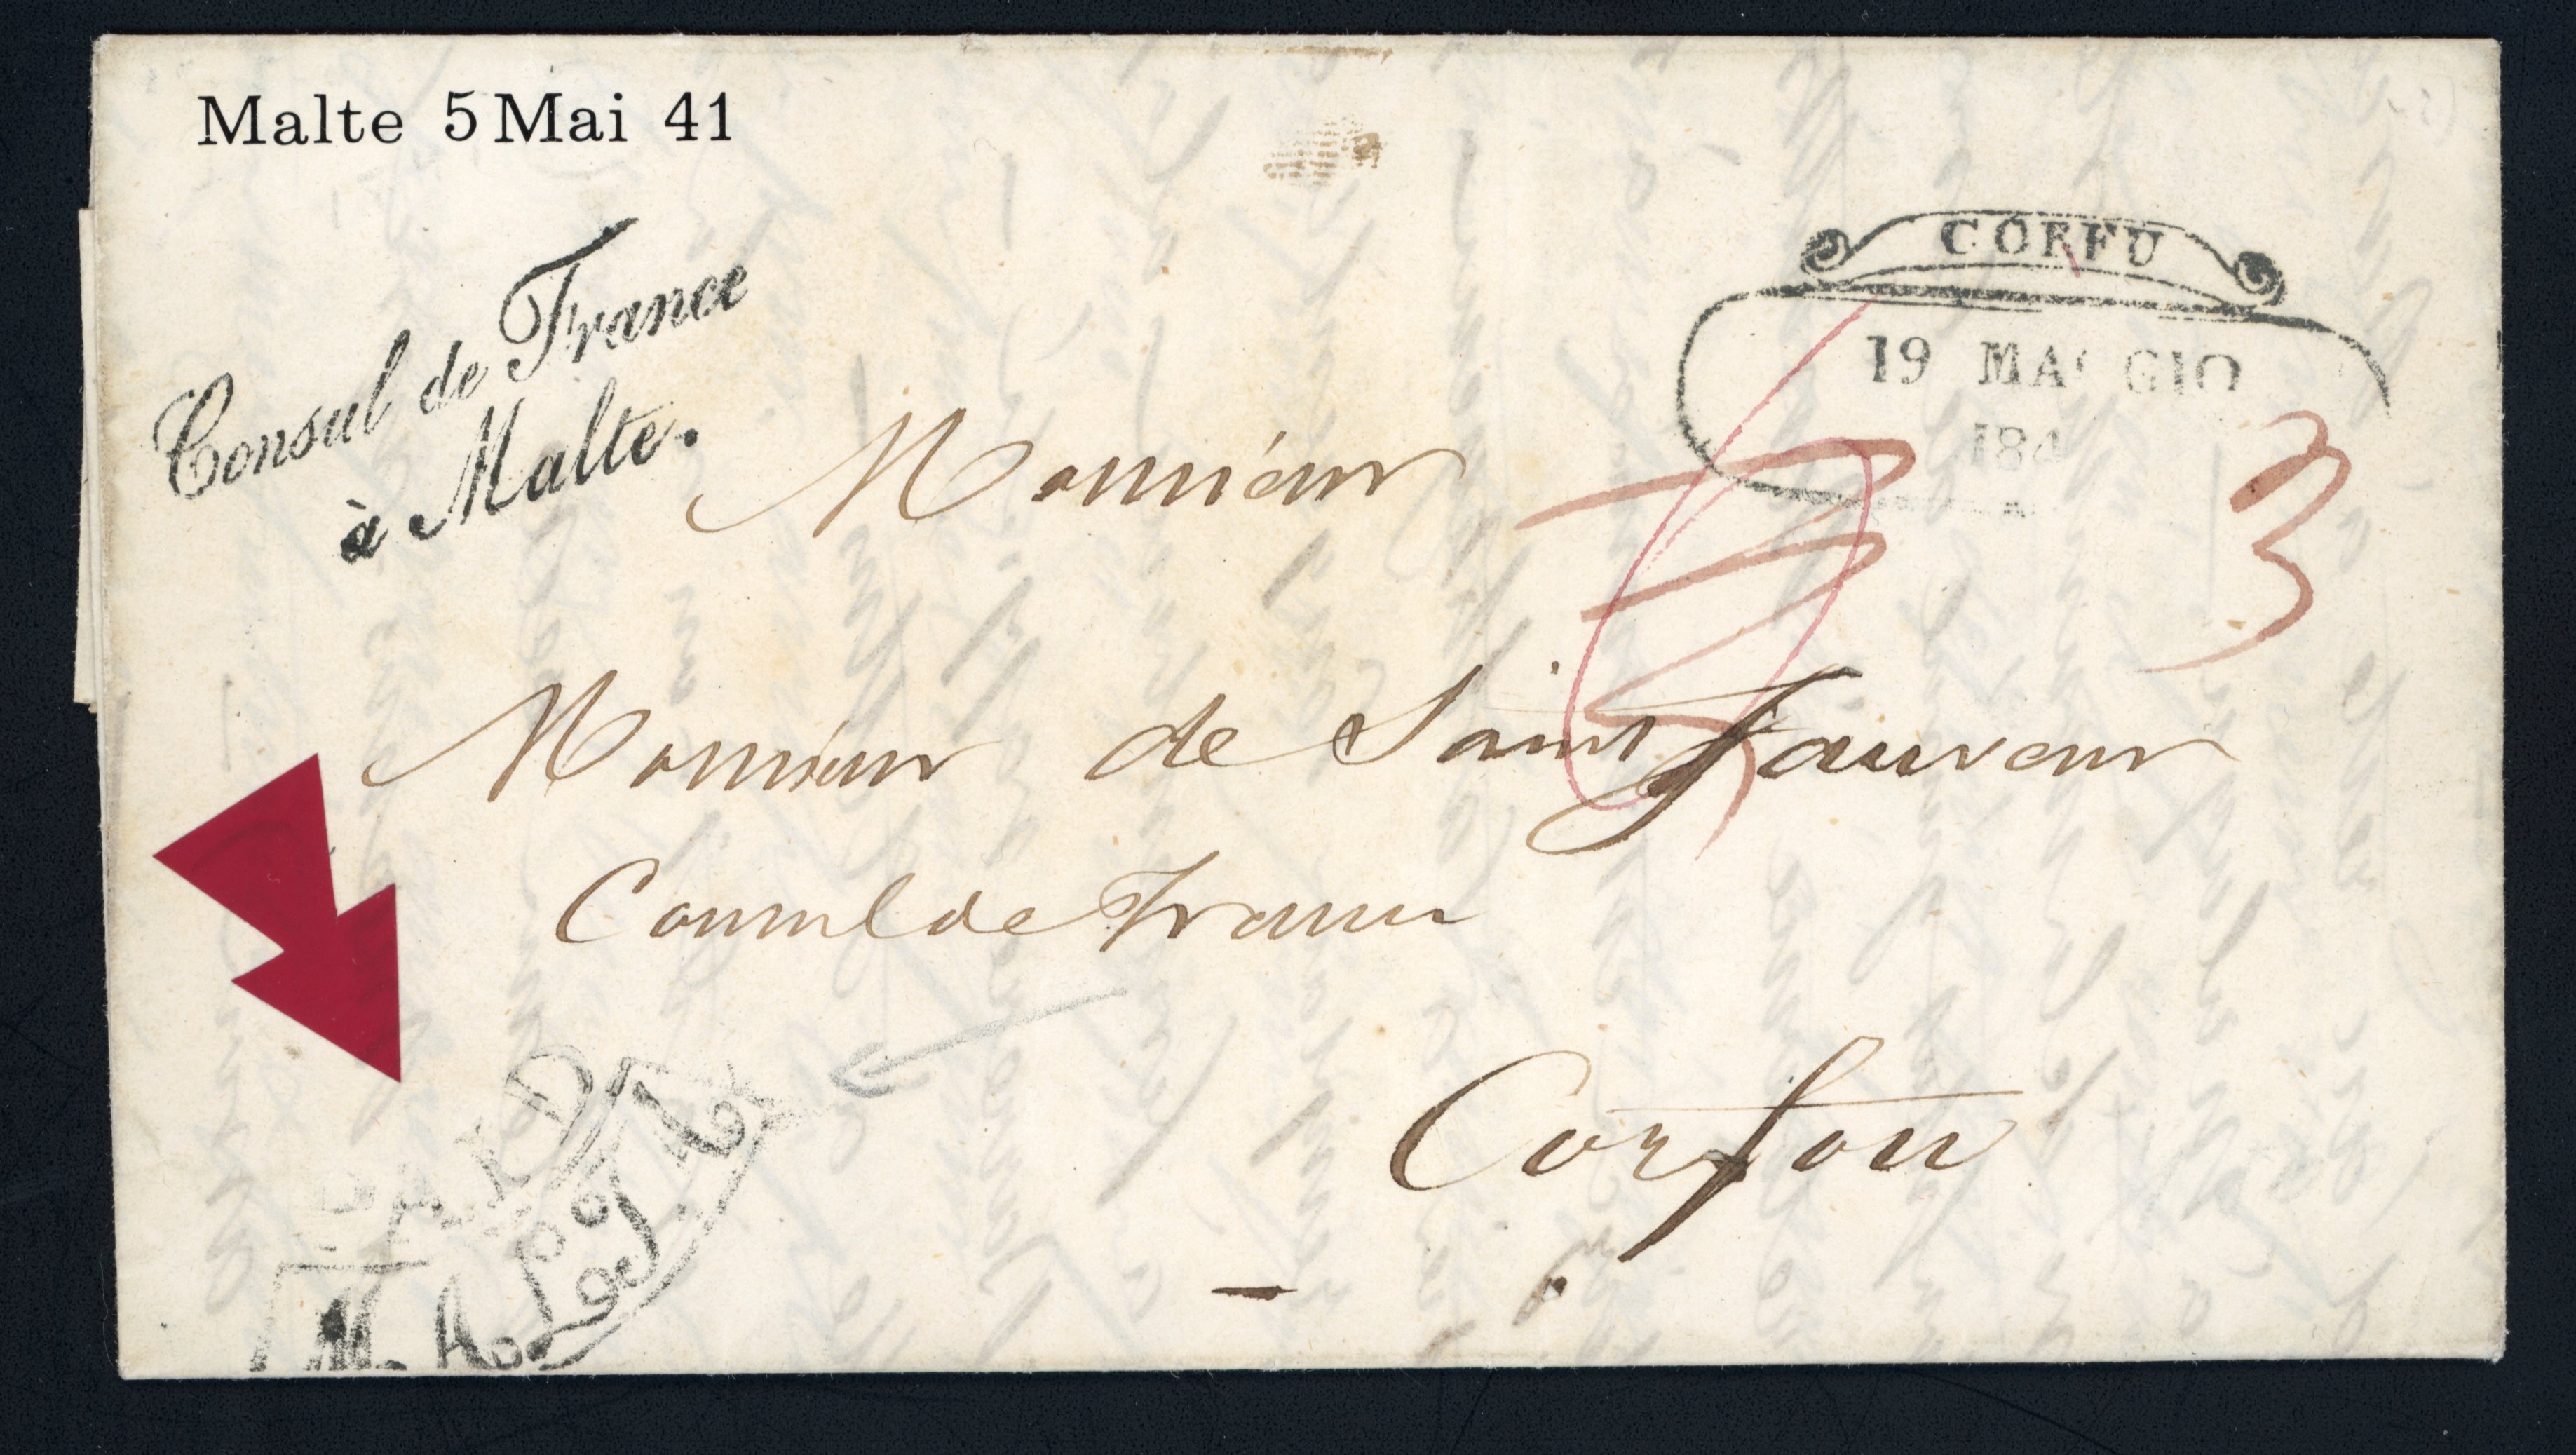 Malte 5 Mai 41
Consul de France
à Malte.
CORFU
19 MAGGIO
184
3
Monsieur
Monsieur de Saint Sauveur
Consul de France
Corfou
PAID